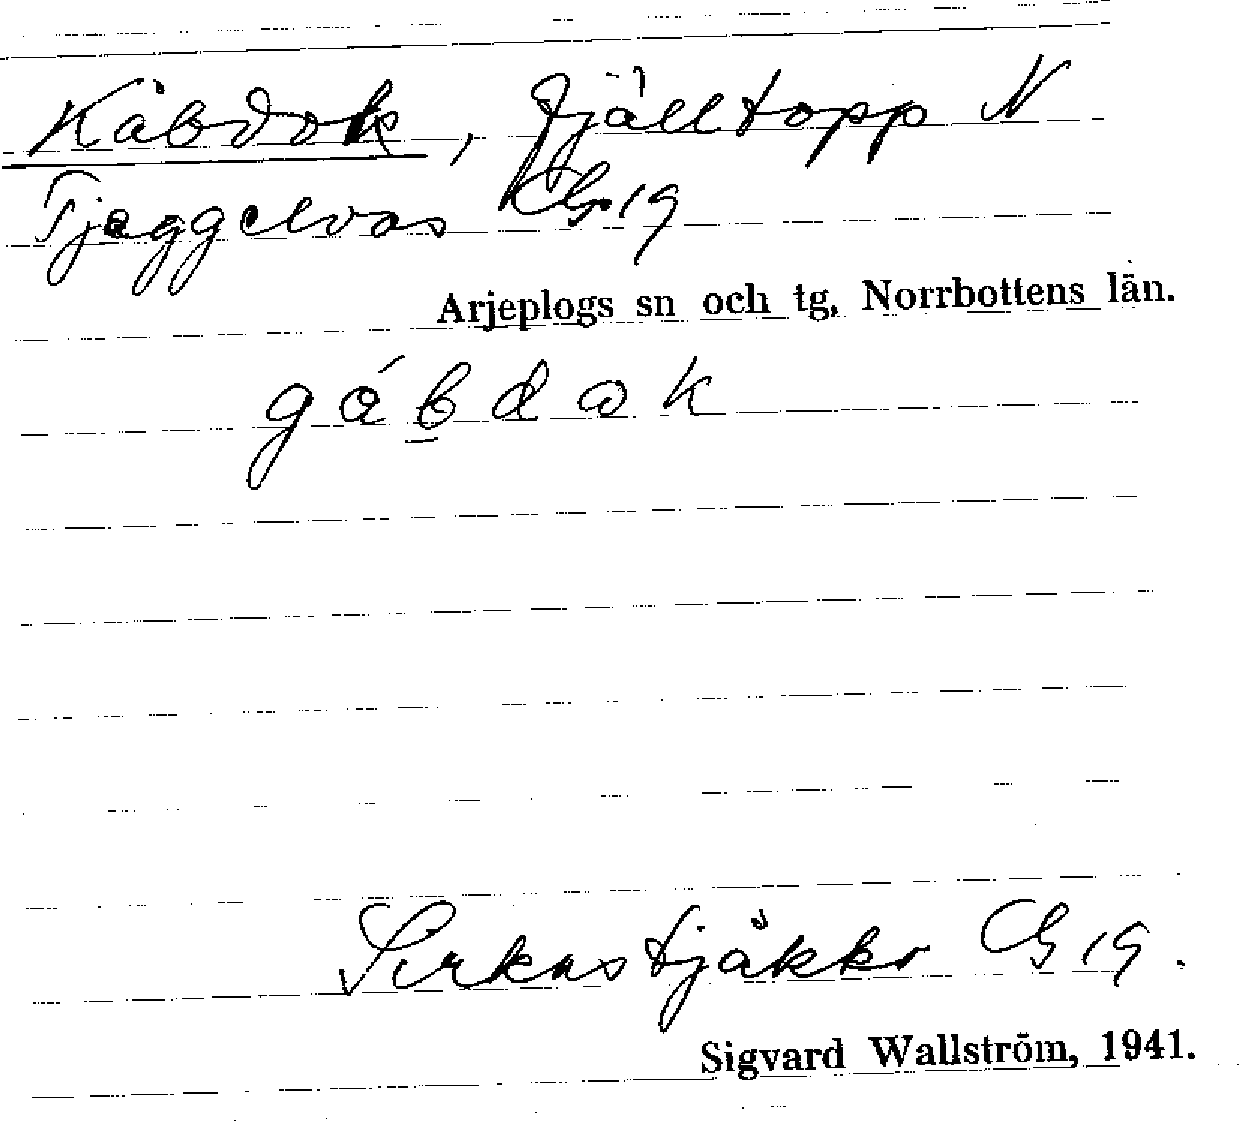 Kåbdok, fjälltopp N
Tjeggelvas Gb 19
Arjeplogs sn och tg, Norrbottens län.
gábdak
Sirkastjåkko Gb 19.
Sigvard Wallström, 1941.